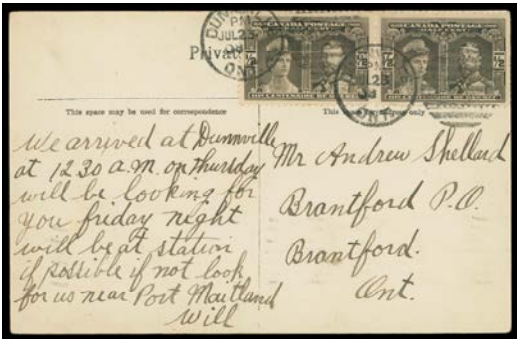 CANADA POSTAGE
CANADA POSTAGE
HALF CENT
½
½
½
PM
JUL 23
ONT
Privat
This space may be used for correspondence
This
only
We arrived at Dunnville
at 12 30 a.m. on Thursday
will be looking for
you friday night
will be at station
if possible if not look
for us near Port Maitland
Will
Mr Andrew Shellard
Brantford P.O.
Brantford.
Ont.